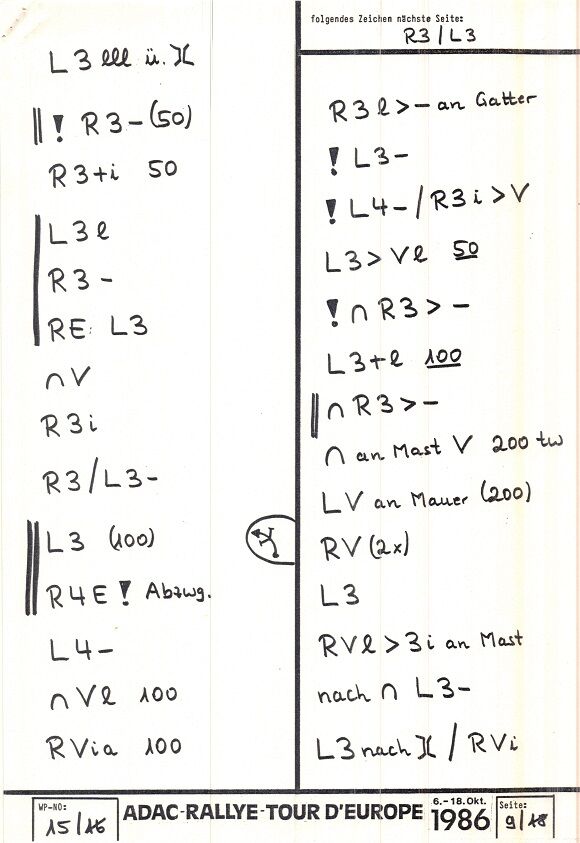 L3 lll ü. )(
! R3- (50)
R3+i 50
L3l
R3-
RE: L3
∩V
R3i
R3/L3-
L3 (100)
R4E ! Abzwg.
L4-
∩Vl 100
RVia 100
folgendes Zeichen nächste Seite:
R3/L3
R3l>- an Gatter
! L3-
! L4-/R3i>V
L3>Vl 50
! ∩ R3>-
L3+l 100
∩ R3>-
∩ an Mast V 200 tw
LV an Mauer (200)
RV (2x)
L3
RVl>3i an Mast
nach ∩ L3-
L3 nach )( / RVi
WP-NO:
15/16
ADAC-RALLYE-TOUR D'EUROPE
6.-18.Okt.
1986
Seite:
9/18